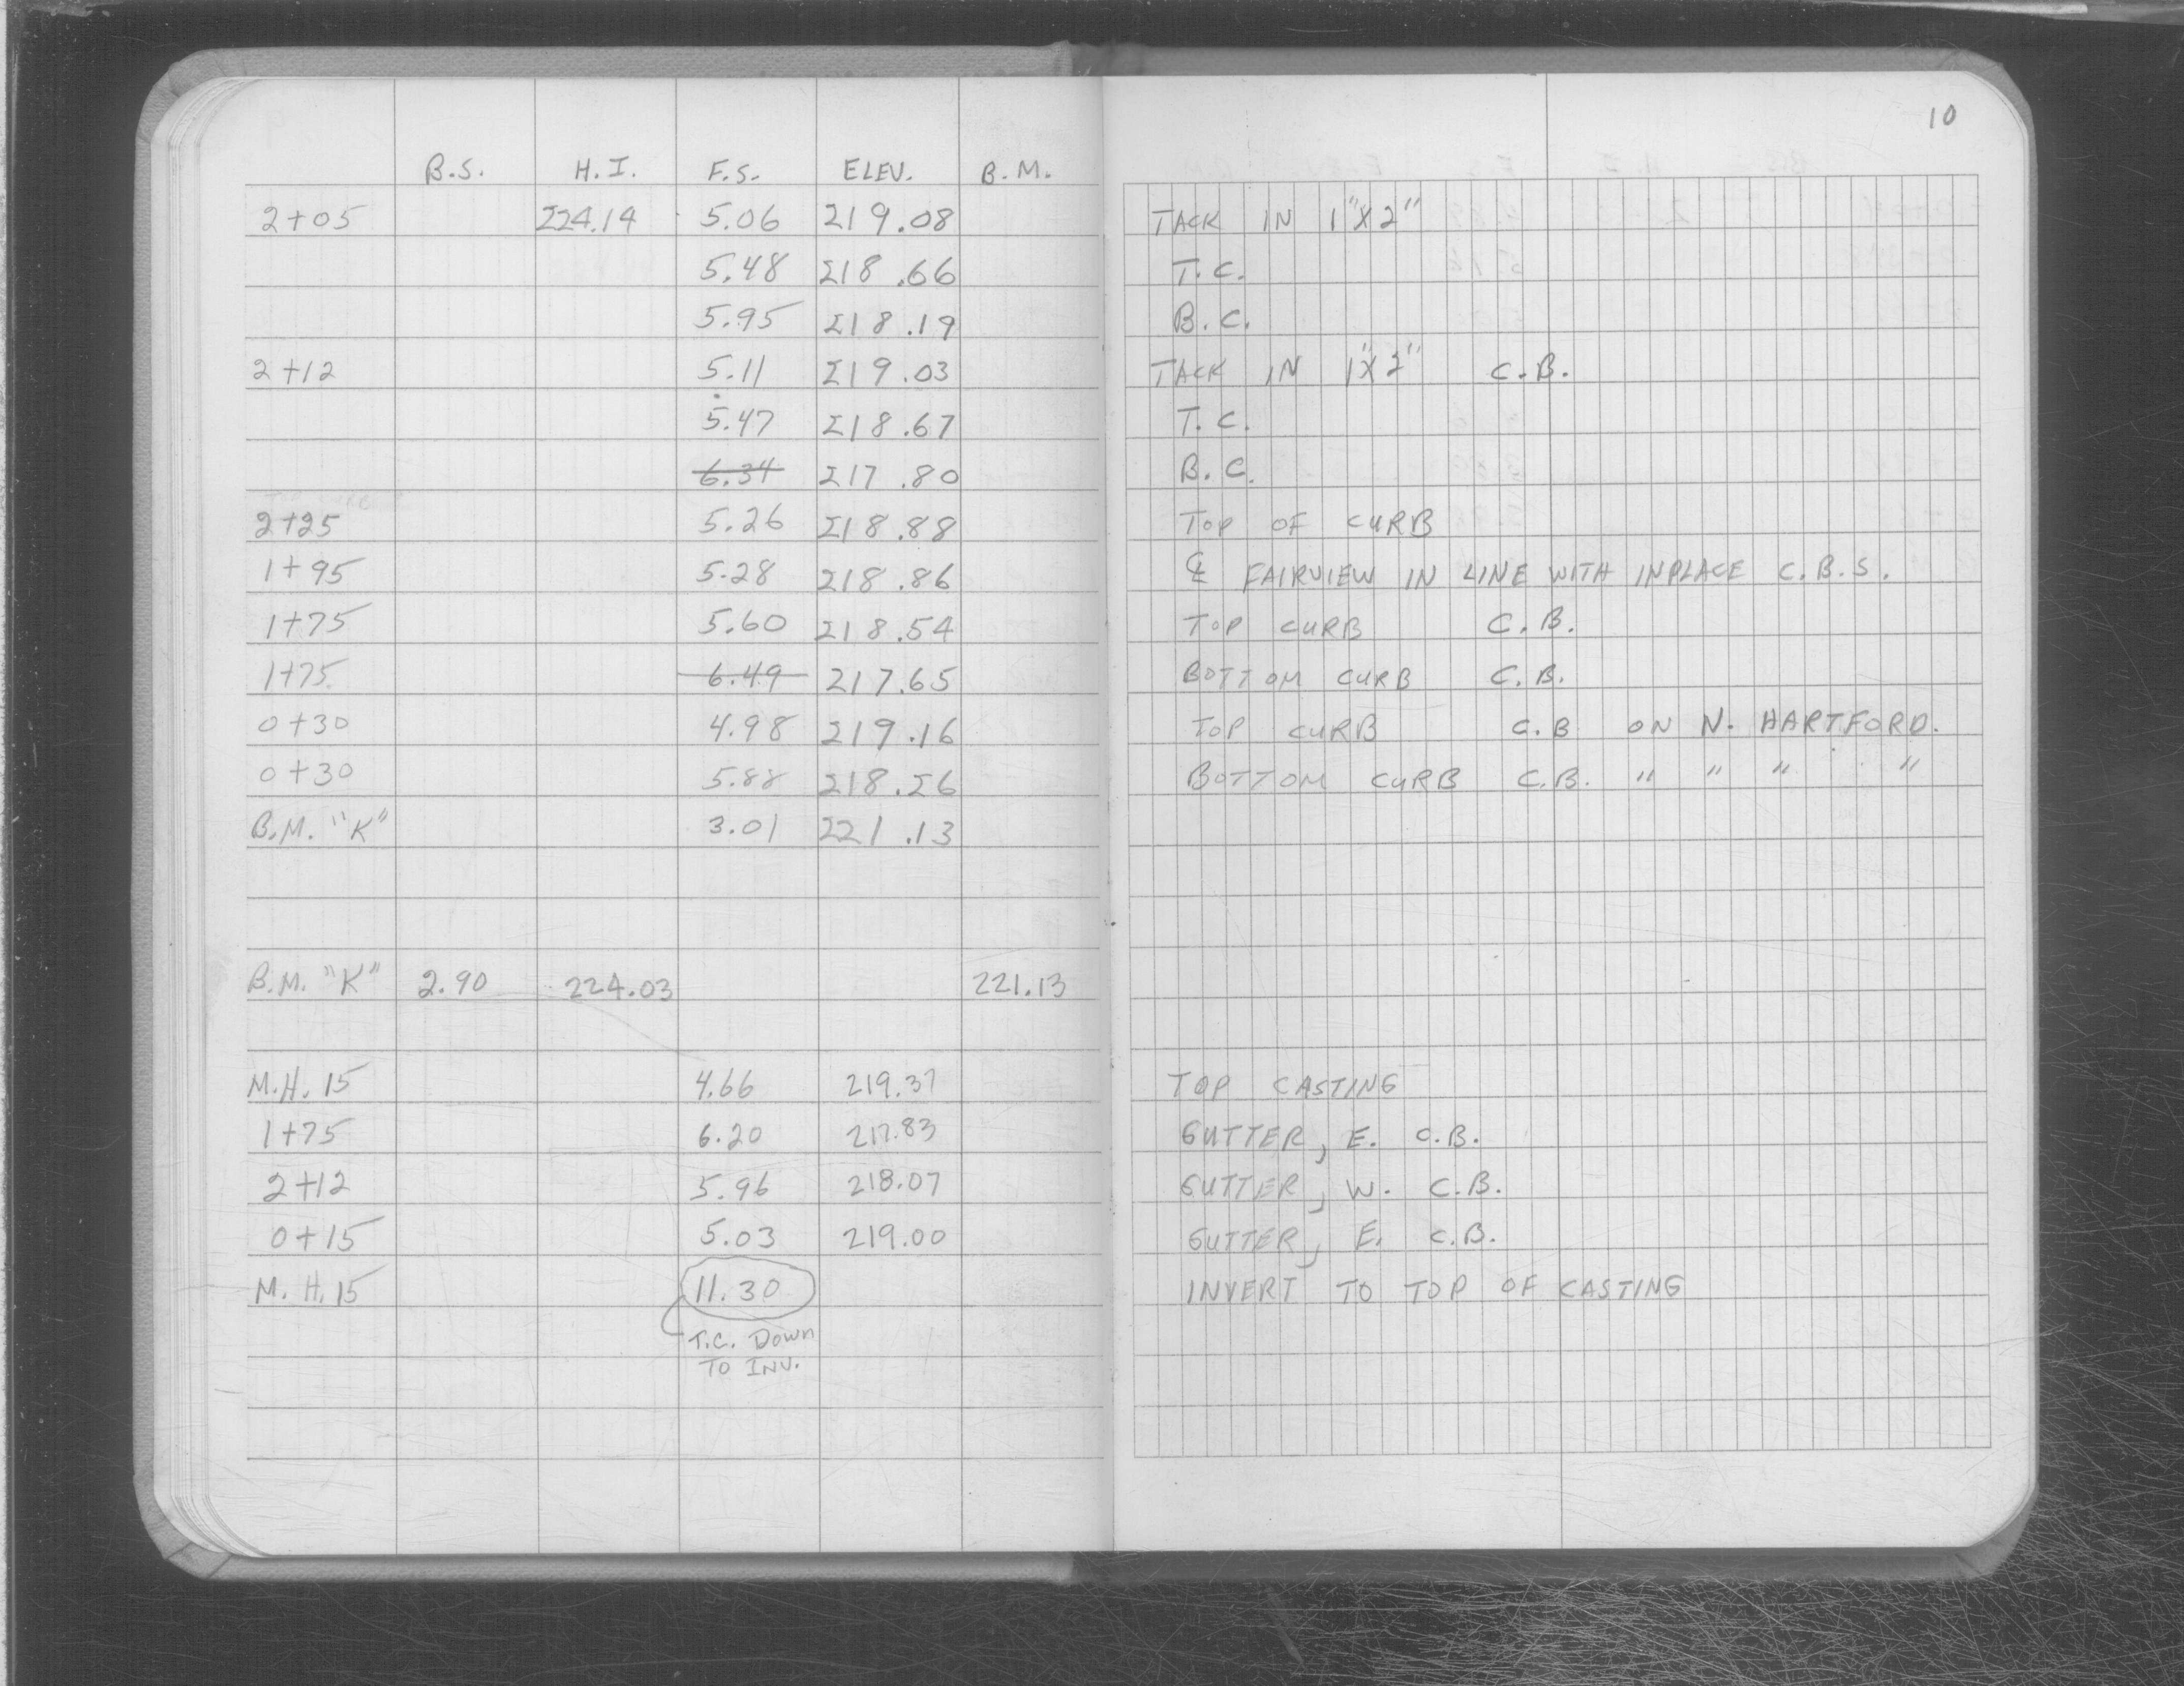 10
B.S. H.I. F.S. ELEV. B.M.
2+05 224.14 5.06 219.08 TACK IN 1"X2"
5.48 218.66 T.C.
5.95 218.19 B.C.
2+12 5.11 219.03 TACK IN 1"X2" C.B.
5.47 218.67 T.C.
6.34 217.80 B.C.
2+25 5.26 218.88 TOP OF CURB
1+95 5.28 218.86 ℄ FAIRVIEW IN LINE WITH INPLACE C.B.S.
1+75 5.60 218.54 TOP CURB C.B.
1+75 6.49 217.65 BOTTOM CURB C.B.
0+30 4.98 219.16 TOP CURB C.B ON N. HARTFORD.
0+30 5.88 218.26 BOTTOM CURB C.B. " " " "
B.M. "K" 3.01 221.13
B.M. "K" 2.90 224.03 221.13
M.H. 15 4.66 219.37 TOP CASTING
1+75 6.20 217.83 GUTTER, E. C.B.
2+12 5.96 218.07 GUTTER, W. C.B.
0+15 5.03 219.00 GUTTER, E. C.B.
M.H. 15 11.30 INVERT TO TOP OF CASTING
T.C. DOWN
TO INV.